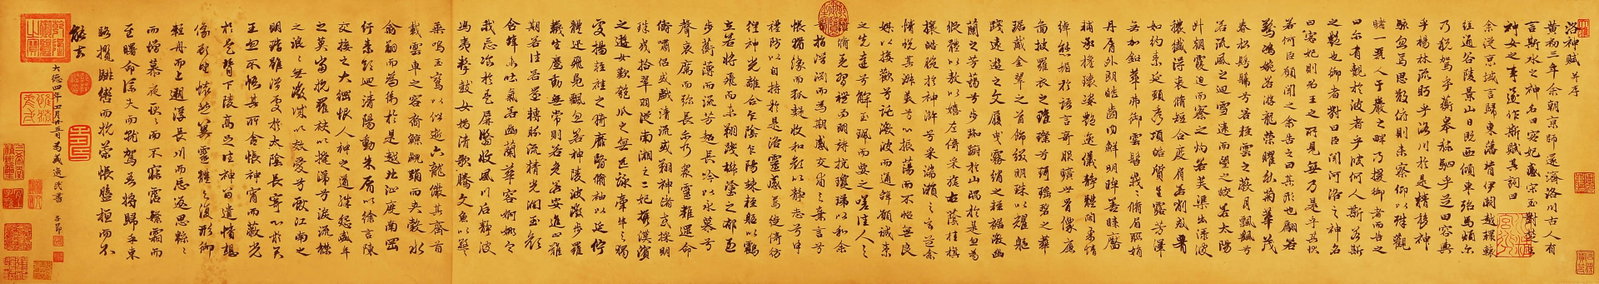 洛神賦 并序
黃初三年余朝京師還濟洛川古人有
言斯水之神名曰宓妃感宋玉對楚王
神女之事遂作斯賦其詞曰
余從京域言歸東藩背伊闕越轘轅
經通谷陵景山日既西傾車殆馬煩爾
乃稅駕乎蘅皋秣駟乎芝田容與
乎楊林流眄乎洛川於是精移神
駭忽焉思散俯則未察仰以殊觀
睹一麗人于巖之畔乃援御者而告之
曰爾有覿於彼者乎彼何人斯若此
之豔也御者對曰臣聞河洛之神名
曰宓妃則君王之所見無乃是乎其狀
若何臣願聞之余告之曰其形也翩若
驚鴻婉若游龍榮曜秋菊華茂
春松髣髴兮若輕雲之蔽月飄颻兮
若流風之迴雪遠而望之皎若太陽
升朝霞迫而察之灼若芙蕖出淥波
穠纖得衷脩短合度肩若削成腰
如約素延頸秀項皓質呈露芳澤
無加鉛華弗御雲髻峨峨脩眉聯娟
丹脣外朗皓齒內鮮明眸善睞靨
輔承權瓌姿豔逸儀靜體閑柔情
綽態媚於語言奇服曠世骨像應
圖披羅衣之璀璨兮珥瑤碧之華
琚戴金翠之首飾綴明珠以耀軀
踐遠遊之文履曳霧綃之輕裾微幽
蘭之芳藹兮步踟躕於山隅於是忽焉
縱體以遨以嬉左倚采旄右蔭桂旗
攘皓腕於神滸兮采湍瀨之玄芝余
情悅其淑美兮心振蕩而不怡無良
媒以接歡兮託微波而通辭願誠素
之先達兮解玉珮而要之嗟佳人之
信脩羌習禮而明詩抗瓊珶以和余
兮指潛淵而為期感交甫之棄言兮
悵猶豫而狐疑收和顏以靜志兮申
禮防以自持於是洛靈感焉徙倚彷
徨神光離合乍陰乍陽竦輕軀以鶴
立若將飛而未翔踐椒塗之郁烈
步蘅薄而流芳超長吟以永慕兮
聲哀厲而彌長爾乃衆靈雜遝命
儔嘯侶或戲清流或翔神渚或采明
珠或拾翠羽從南湘之二妃攜漢濱
之遊女歎匏瓜之無匹詠牽牛之獨
處揚輕袿之猗靡翳脩袖以延佇
體迅飛鳧飄忽若神陵波微步羅
襪生塵動無常則若危若安進止難
期若往若還轉眄流精光潤玉顏
含辭未吐氣若幽蘭華容婀娜令
我忘飡於是屏翳收風川后靜波
馮夷擊鼓女媧清歌騰文魚以警
乘鳴玉鸞以偕逝六龍儼其齊首
載雲車之容裔鯨鯢踴而夾轂水
禽翔而為衛於是越北沚度南岡
紆素領迴清陽動朱脣以徐言陳
交接之大綱恨人神之道殊怨盛年
之莫當抗羅袂以掩涕兮淚流襟
之浪浪無微情以效愛兮獻江南之
明璫雖潛處於太陰長寄心於君
王忽不悟其所舍悵神宵而蔽光
於是背下陵高足往神留遺情想
像顧望懷愁冀靈體之復形御
輕舟而上遡浮長川而忘返思緜緜
而增慕夜耿耿而不寐霑繁霜而
至曙命僕夫而就駕吾將歸乎東
路攬騑轡而抗策悵盤桓而不
能去
大德四年四月廿五日為盛逸民書 子昂